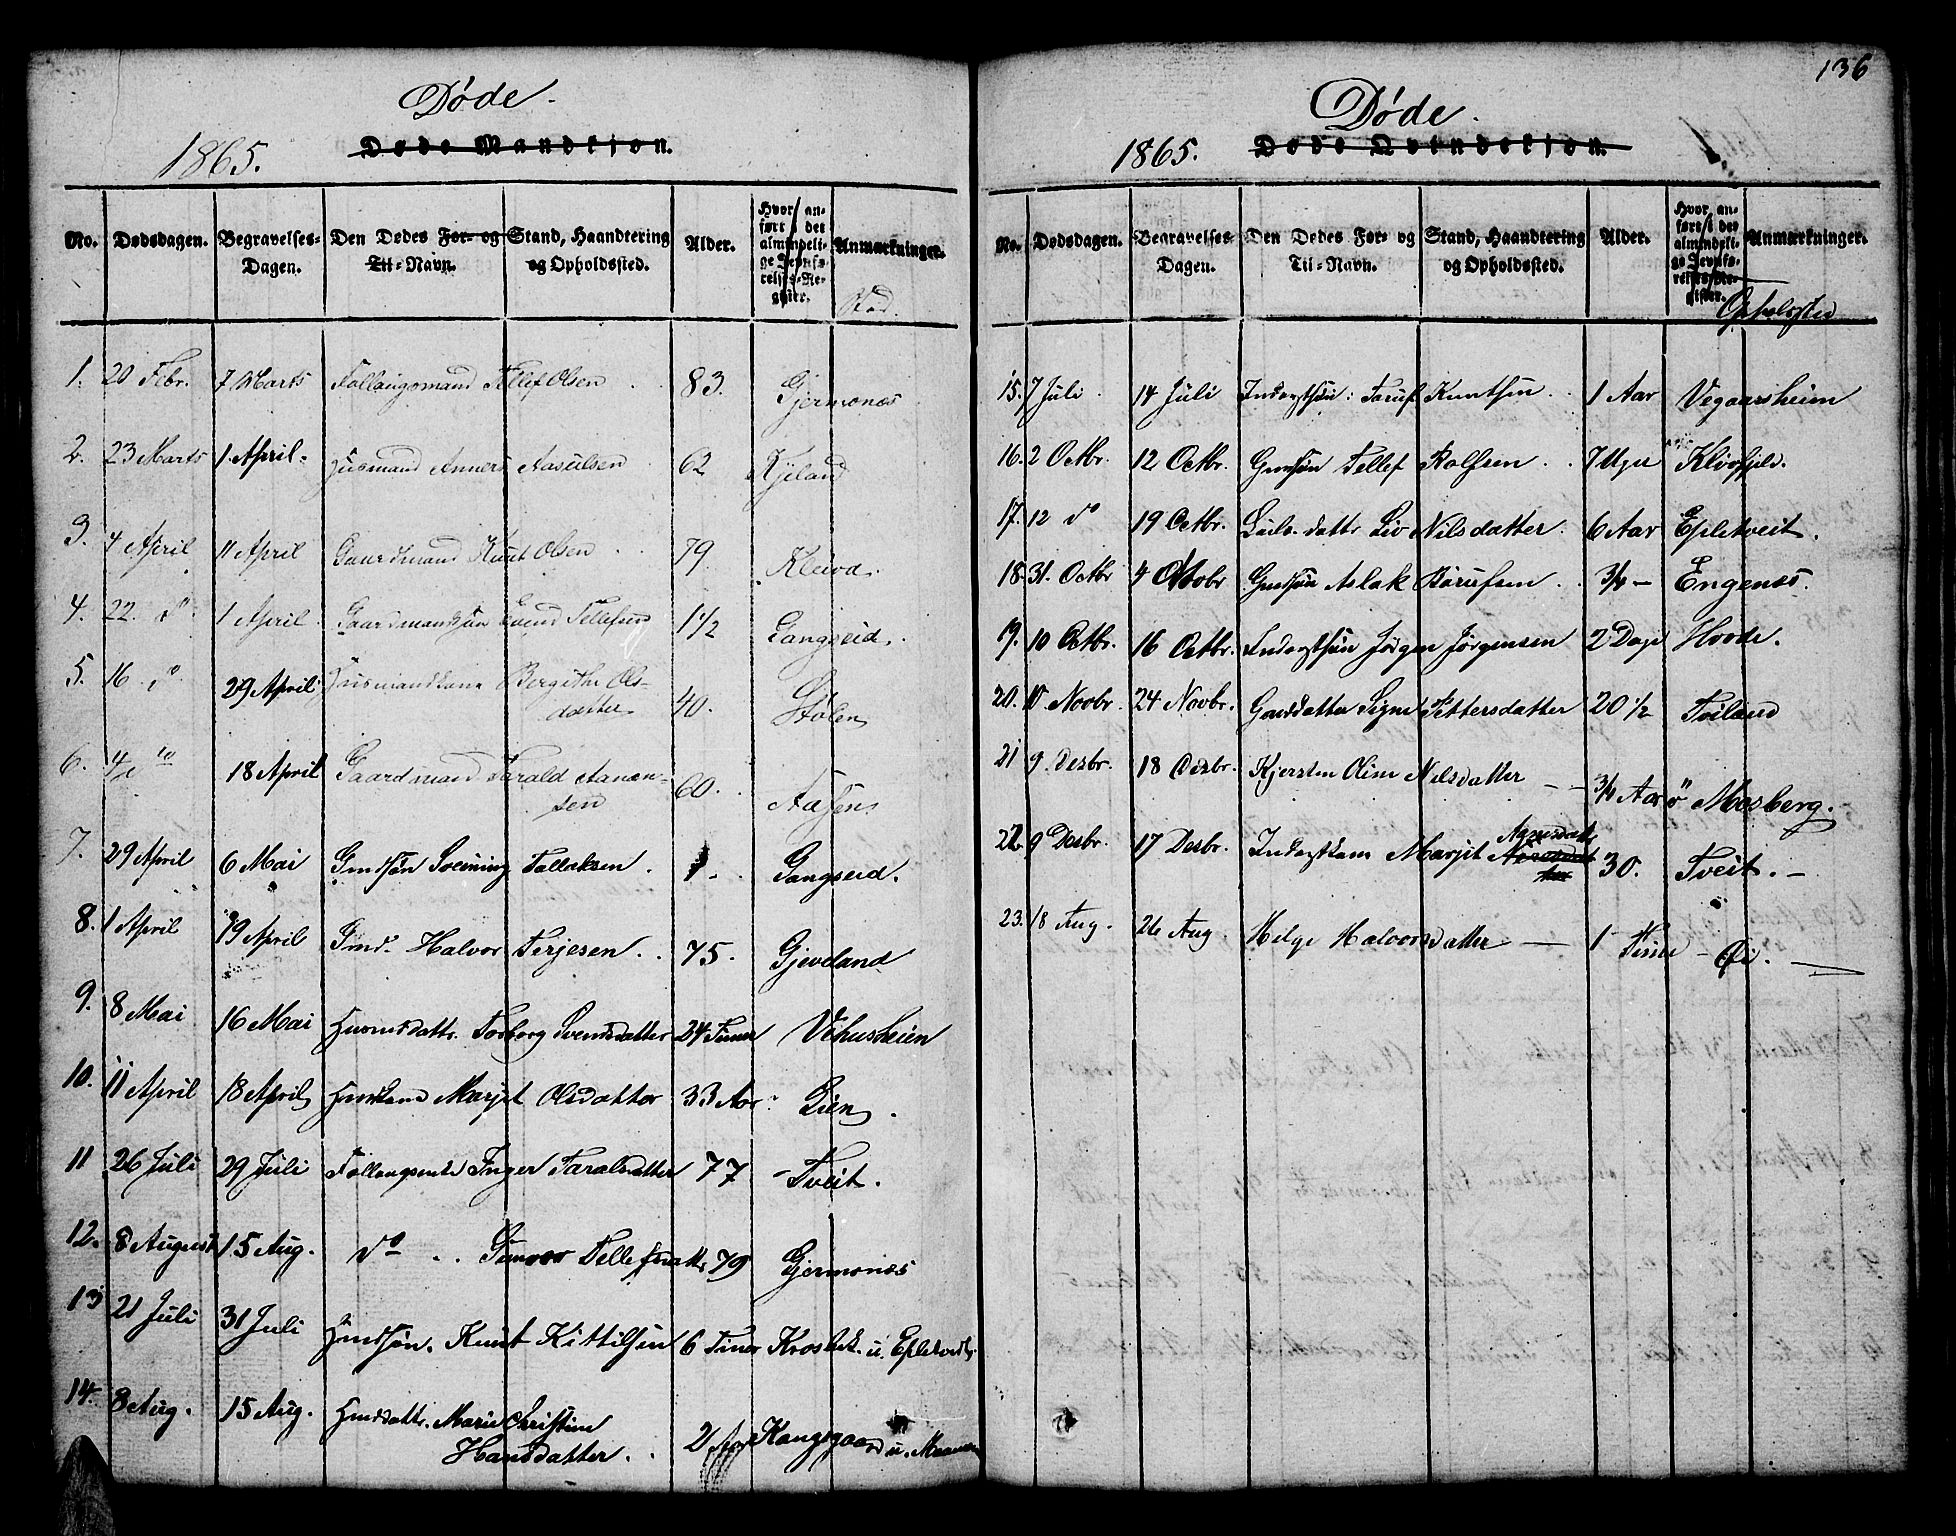 136
Døde.
1865. Døde Mandkjøn.
No. Dødsdagen. Begravelses-Dagen. Den Dødes For- og Til-Navn. Stand, Haandtering og Opholdssted. Alder. Hvor anført i det almindelige Jevnførelses-Register. Anmærkninger.
Sted.
1. 20 Febr. 7 Marts Follaugsmand Tellef Olsen 83. Gjermonæs
2. 23 Marts 1. April. Husmand Anners Aasulsen 62 Kjeland
3. 4 April 11 April Gaardmand Knut Olsen 79. Kleivd.
4. 22. do 1 April Gaardmandsøn Evend Tellefsen 1 1/2 Gangseid.
5. 16 do 29 April Husmandkana Bergithe Ols-
datter 40. Stølen
6. 4/4 do 18 April Gaardmand Tarald Aanon-
sen 60. Aasen
7. 29 April 6 Mai Gmdsøn Sveinung Tallaksen 1. Gangseid.
8. 1 April 19 April Gmd. Halvor Terjesen 75. Gjeveland
9. 8 Mai 16 Mai Husmdsdattr. Torborg Svendsdatter 24 Timer Vehusheien
10. 11 April 18 April Husmkana Marjet Olsdatter 33 Aar Lien
11 26 Juli 29 Juli Follaugsenke Inger Taralsdatter 77 Tveit.
12. 8 August 15 Aug. do Gunvor Tellefsdattr 79 Gjermonæs
13 21 Juli 31 Juli Hmdsøn. Knut Kittilsen 6 Timer Krosbek. u. Epletveit
14. 8 Aug. 15 Aug. Hmdsdattr. Marie Christine
Hansdatter. 2 Aar Kongsgaard u. Moamo
Døde.
1865. Døde Qvindekjøn.
No. Dødsdagen. Begravelses-Dagen. Den Dødes For- og Til-Navn. Stand, Haandtering og Opholdssted. Alder. Hvor anført i det almindelige Jevnførelses-Register. Anmærkninger.
Opholssted
15. 7 Juli 14 Juli Inderstsøn: Taruf Knutsen 1 Aar Vegaarsheim
16. 2 Octbr. 12 Octbr. Gmdsøn Tellef Rolfsen 7 Uger Klivfjeld.
17. 12 do 19 Octbr. Leilv. dattr Liv Nilsdatter 6 Aar Epletveit.
18. 31. Octbr 4 Novbr Gmdsøn Aslak Børufsen 3/4 — Engenæs.
19. 10 Octbr. 16 Octbr. Inderstsøn Jørgen Jørgensen 2 Dage Hovde.
20. 10 Novbr. 24 Novbr. Gmdsdatter Signe Pettersdatter 20 1/2 Toiland
21 9. Desbr. 18 Desbr. Kjersten Oline Nilsdatter 3/4 Aar Mosberg.
22. 9 Desbr. 17 Desbr. Inderstkana Marjit Agnesdatt 30. Tveit.
23. 18 Aug. 26 Aug. Helge Halvorsdatter 1 Time Øi.